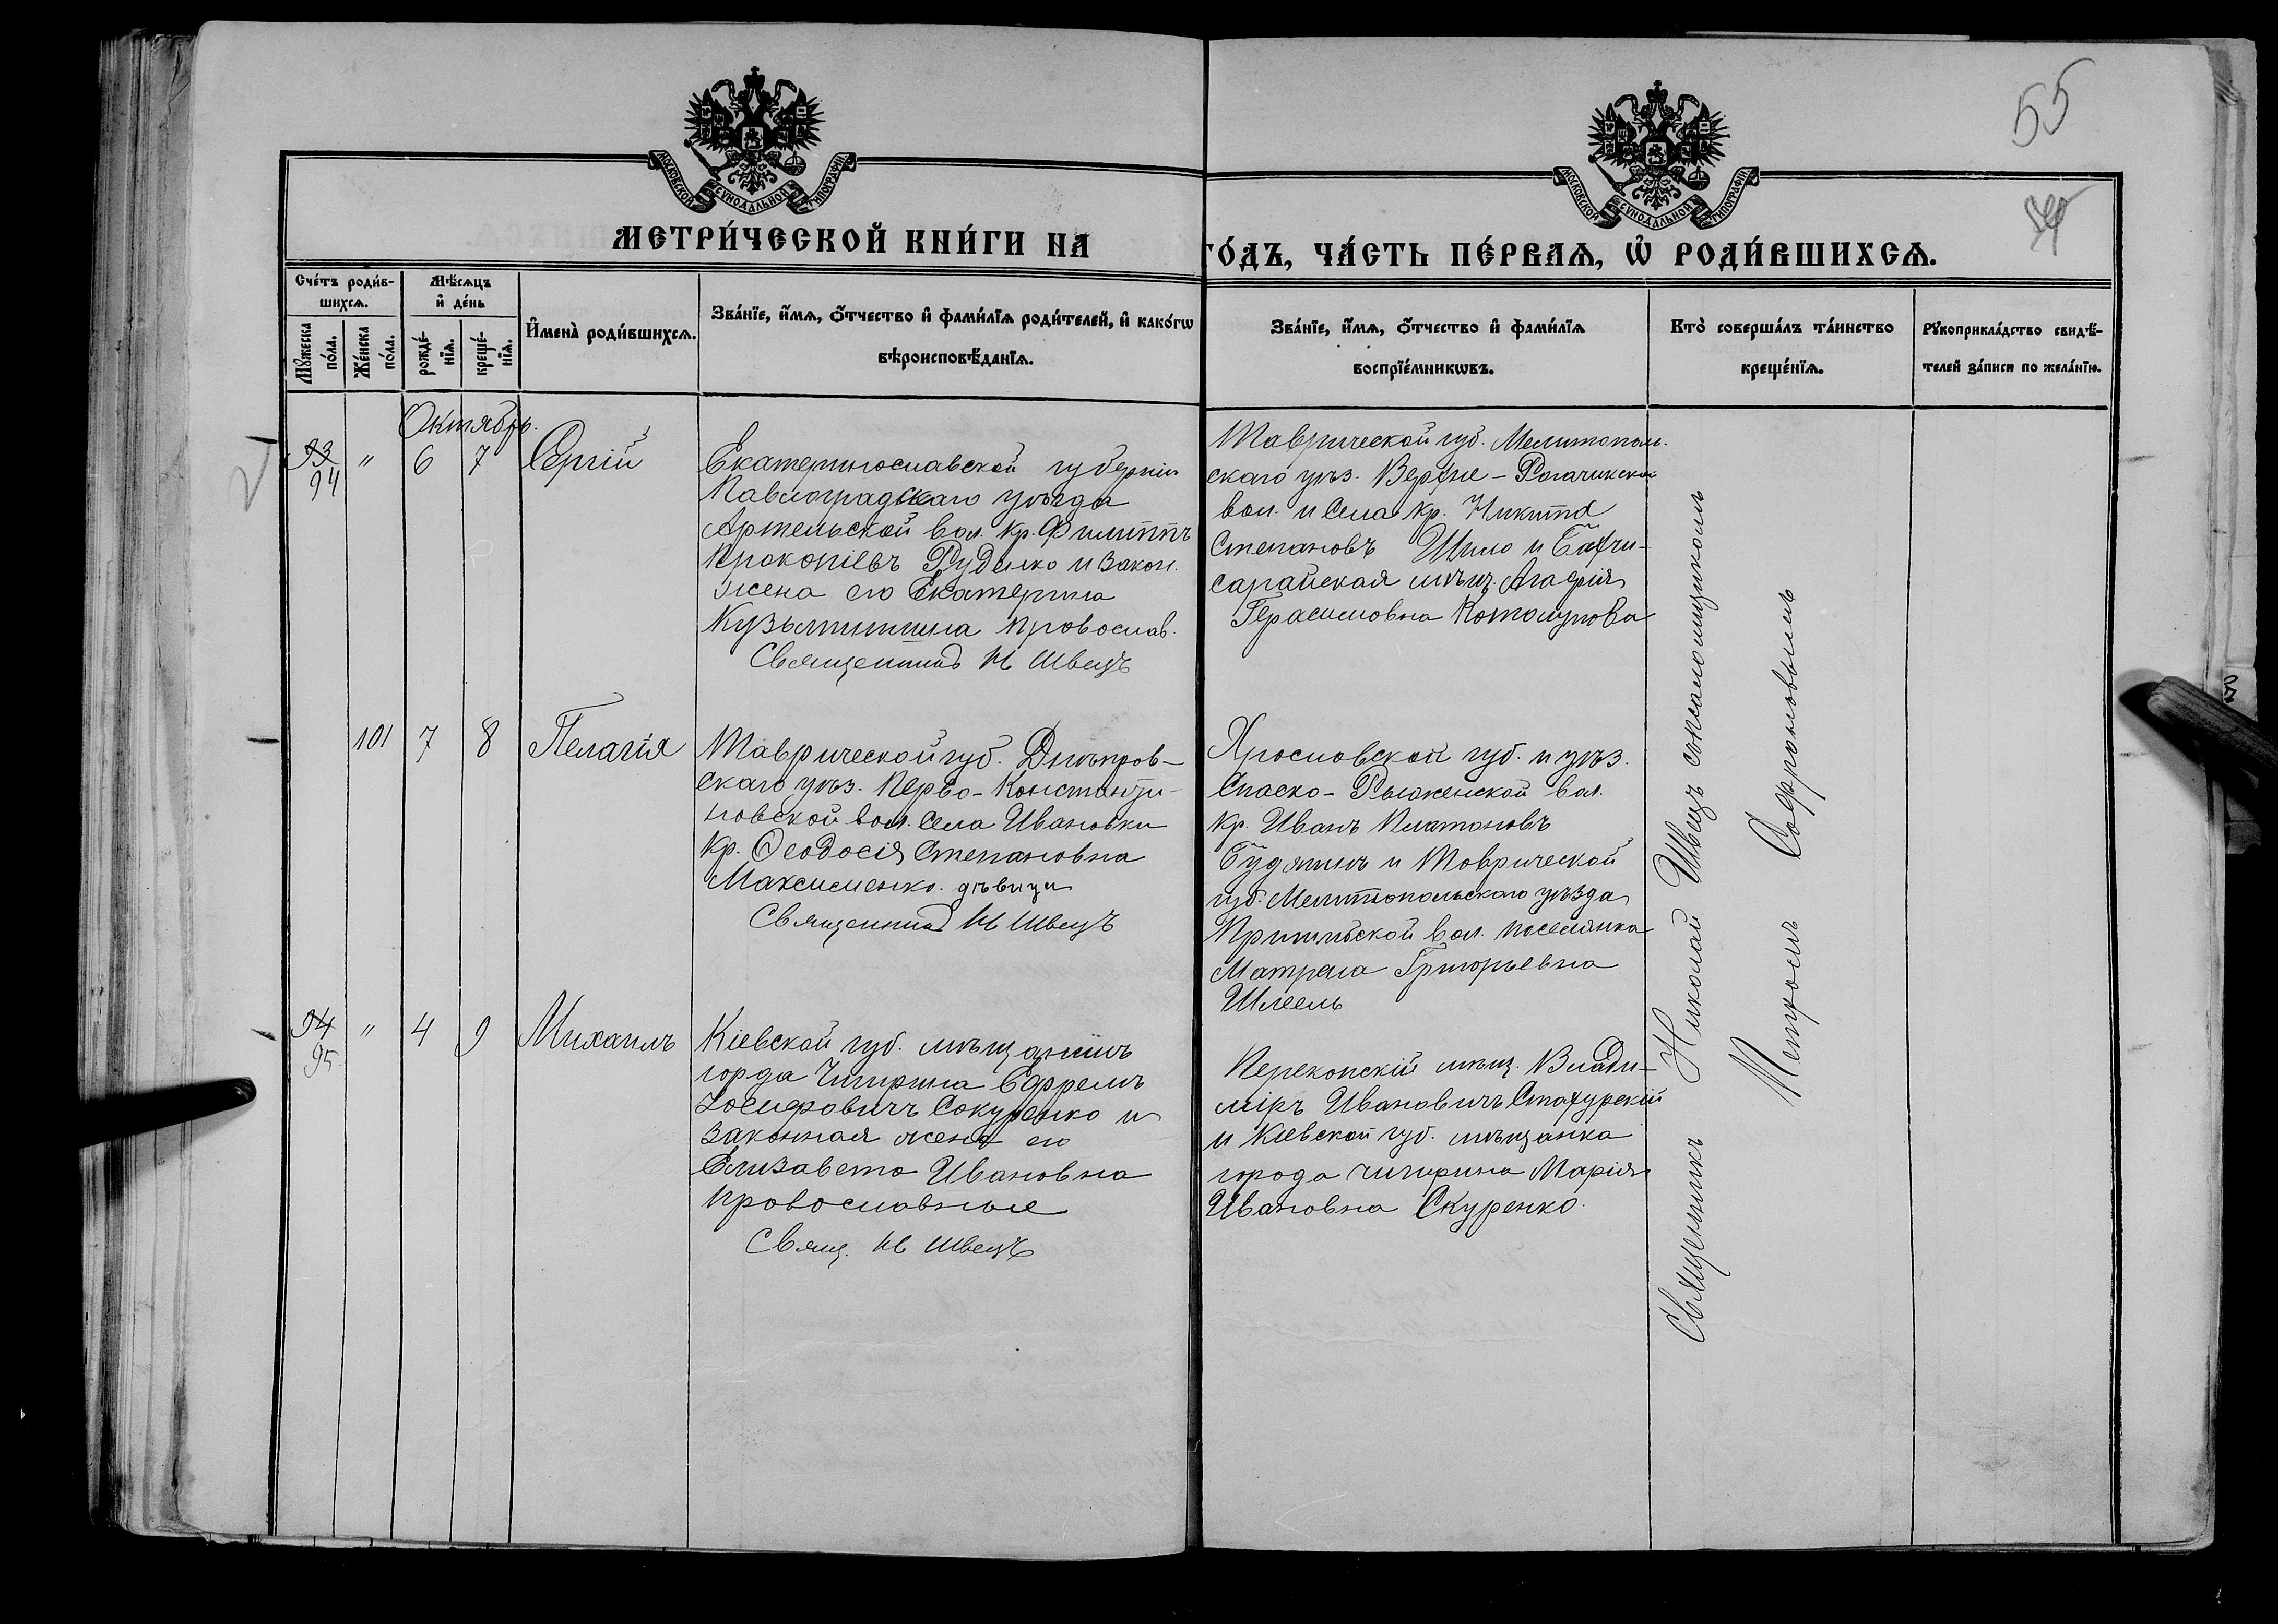 55
МОСКОВСКОЙ СѴНОДАЛЬНОЙ ТИПОГРАФІИ
МОСКОВСКОЙ СѴНОДАЛЬНОЙ ТИПОГРАФІИ
МЕТРИ́ЧЕСКОЙ КНИ́ГИ НА
ГО́ДЪ, ЧА́СТЬ ПЕ́РВАѦ, Ѡ҆ РОДИ́ВШИХСѦ.
Сче́тъ роди́в-
шихсѧ.
Мꙋжеска по́ла.
Же́нска по́ла.
Мѣ́сѧцъ
и҆ де́нь
рожде́-
нїѧ.
креще́-
нїѧ.
И҆мена̀ роди́вшихсѧ.
Зва́нїе, и҆́мѧ, ѻ҆́тчество и҆ фами́лїѧ роди́телей, и҆ како́гѡ
вѣроисповѣ́данїѧ.
Зва́нїе, и҆́мѧ, ѻ҆́тчество и҆ фами́лїѧ
воспрїе́мникѡвъ.
Кто̀ соверша́лъ та́инство
креще́нїѧ.
Рꙋкоприкла́дство свидѣ́-
телей за́писи по жела́нїю.
Октябрь.
93
94
"
6
7
Сергій
Екатеринославской губерніи
Павлоградскаго уѣзда
Артельской вол. кр. Филиппъ
Прокопіевъ Руденко и закон.
жена его Екатерина
Кузьминишна провослав.
Священникъ Н Швецъ
Таврической губ. Мелитополь-
скаго уѣз. Верхне-Рогачикской
вол. и села кр. Никита
Степановъ Шило и Бахчи-
сарайская мѣщ. Агафія
Герасимовна Котолупова
101
7
8
Пелагія
Таврической губ. Днѣпров-
скаго уѣз. Перво-Константи-
новской вол. села Ивановки
кр. Ѳеодосія Степановна
Максименко. дѣвица
Священникъ Н Швецъ
Херсоновской губ. и уѣз.
Спаско- вол.
кр. Иванъ Платоновъ
и Товрической
губ. Мелитопольскаго уѣзда
Пришибской вол. поселянка
Матрена Григорьевна
Шмеель
94
95
"
4
9
Михаилъ
Кіевской губ. мѣщанинъ
горда Чигирина Ефремъ
Іосифовичъ Сокуренко и
законная жена его
Елизавета Ивановна
провославные
Свящ. Н Швецъ
Перекопскій мѣщ. Влади-
міръ Ивановичъ Стахурскій
и Кіевской губ. мѣщанка
города Чигирина Марія
Ивановна Скуренко.
Священникъ Николай Швецъ съ псаломщикомъ
Петромъ Софроновымъ